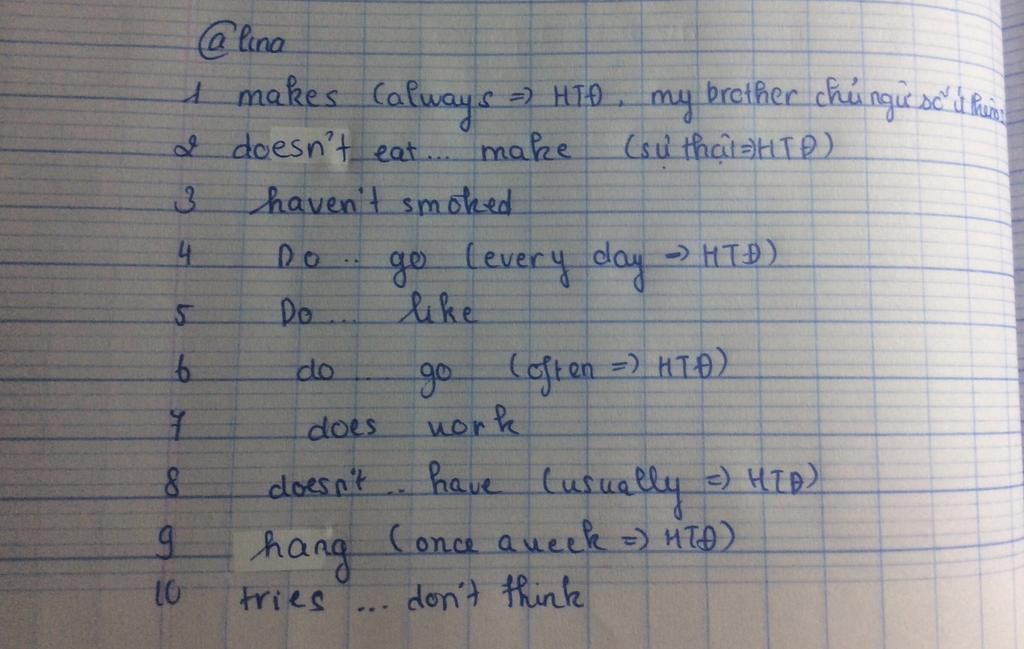 @lina
1 makes (always => HTĐ, my brother chủ ngữ số ít
2 doesn't eat... make (sự thật=>HTĐ)
3 haven't smoked
4 Do .. go (every day => HTĐ)
5 Do... like
6 do ... go (often => HTĐ)
7 does work
8 doesn't .. have (usually => HTĐ)
9 hang (once a week => HTĐ)
10 tries ... don't think